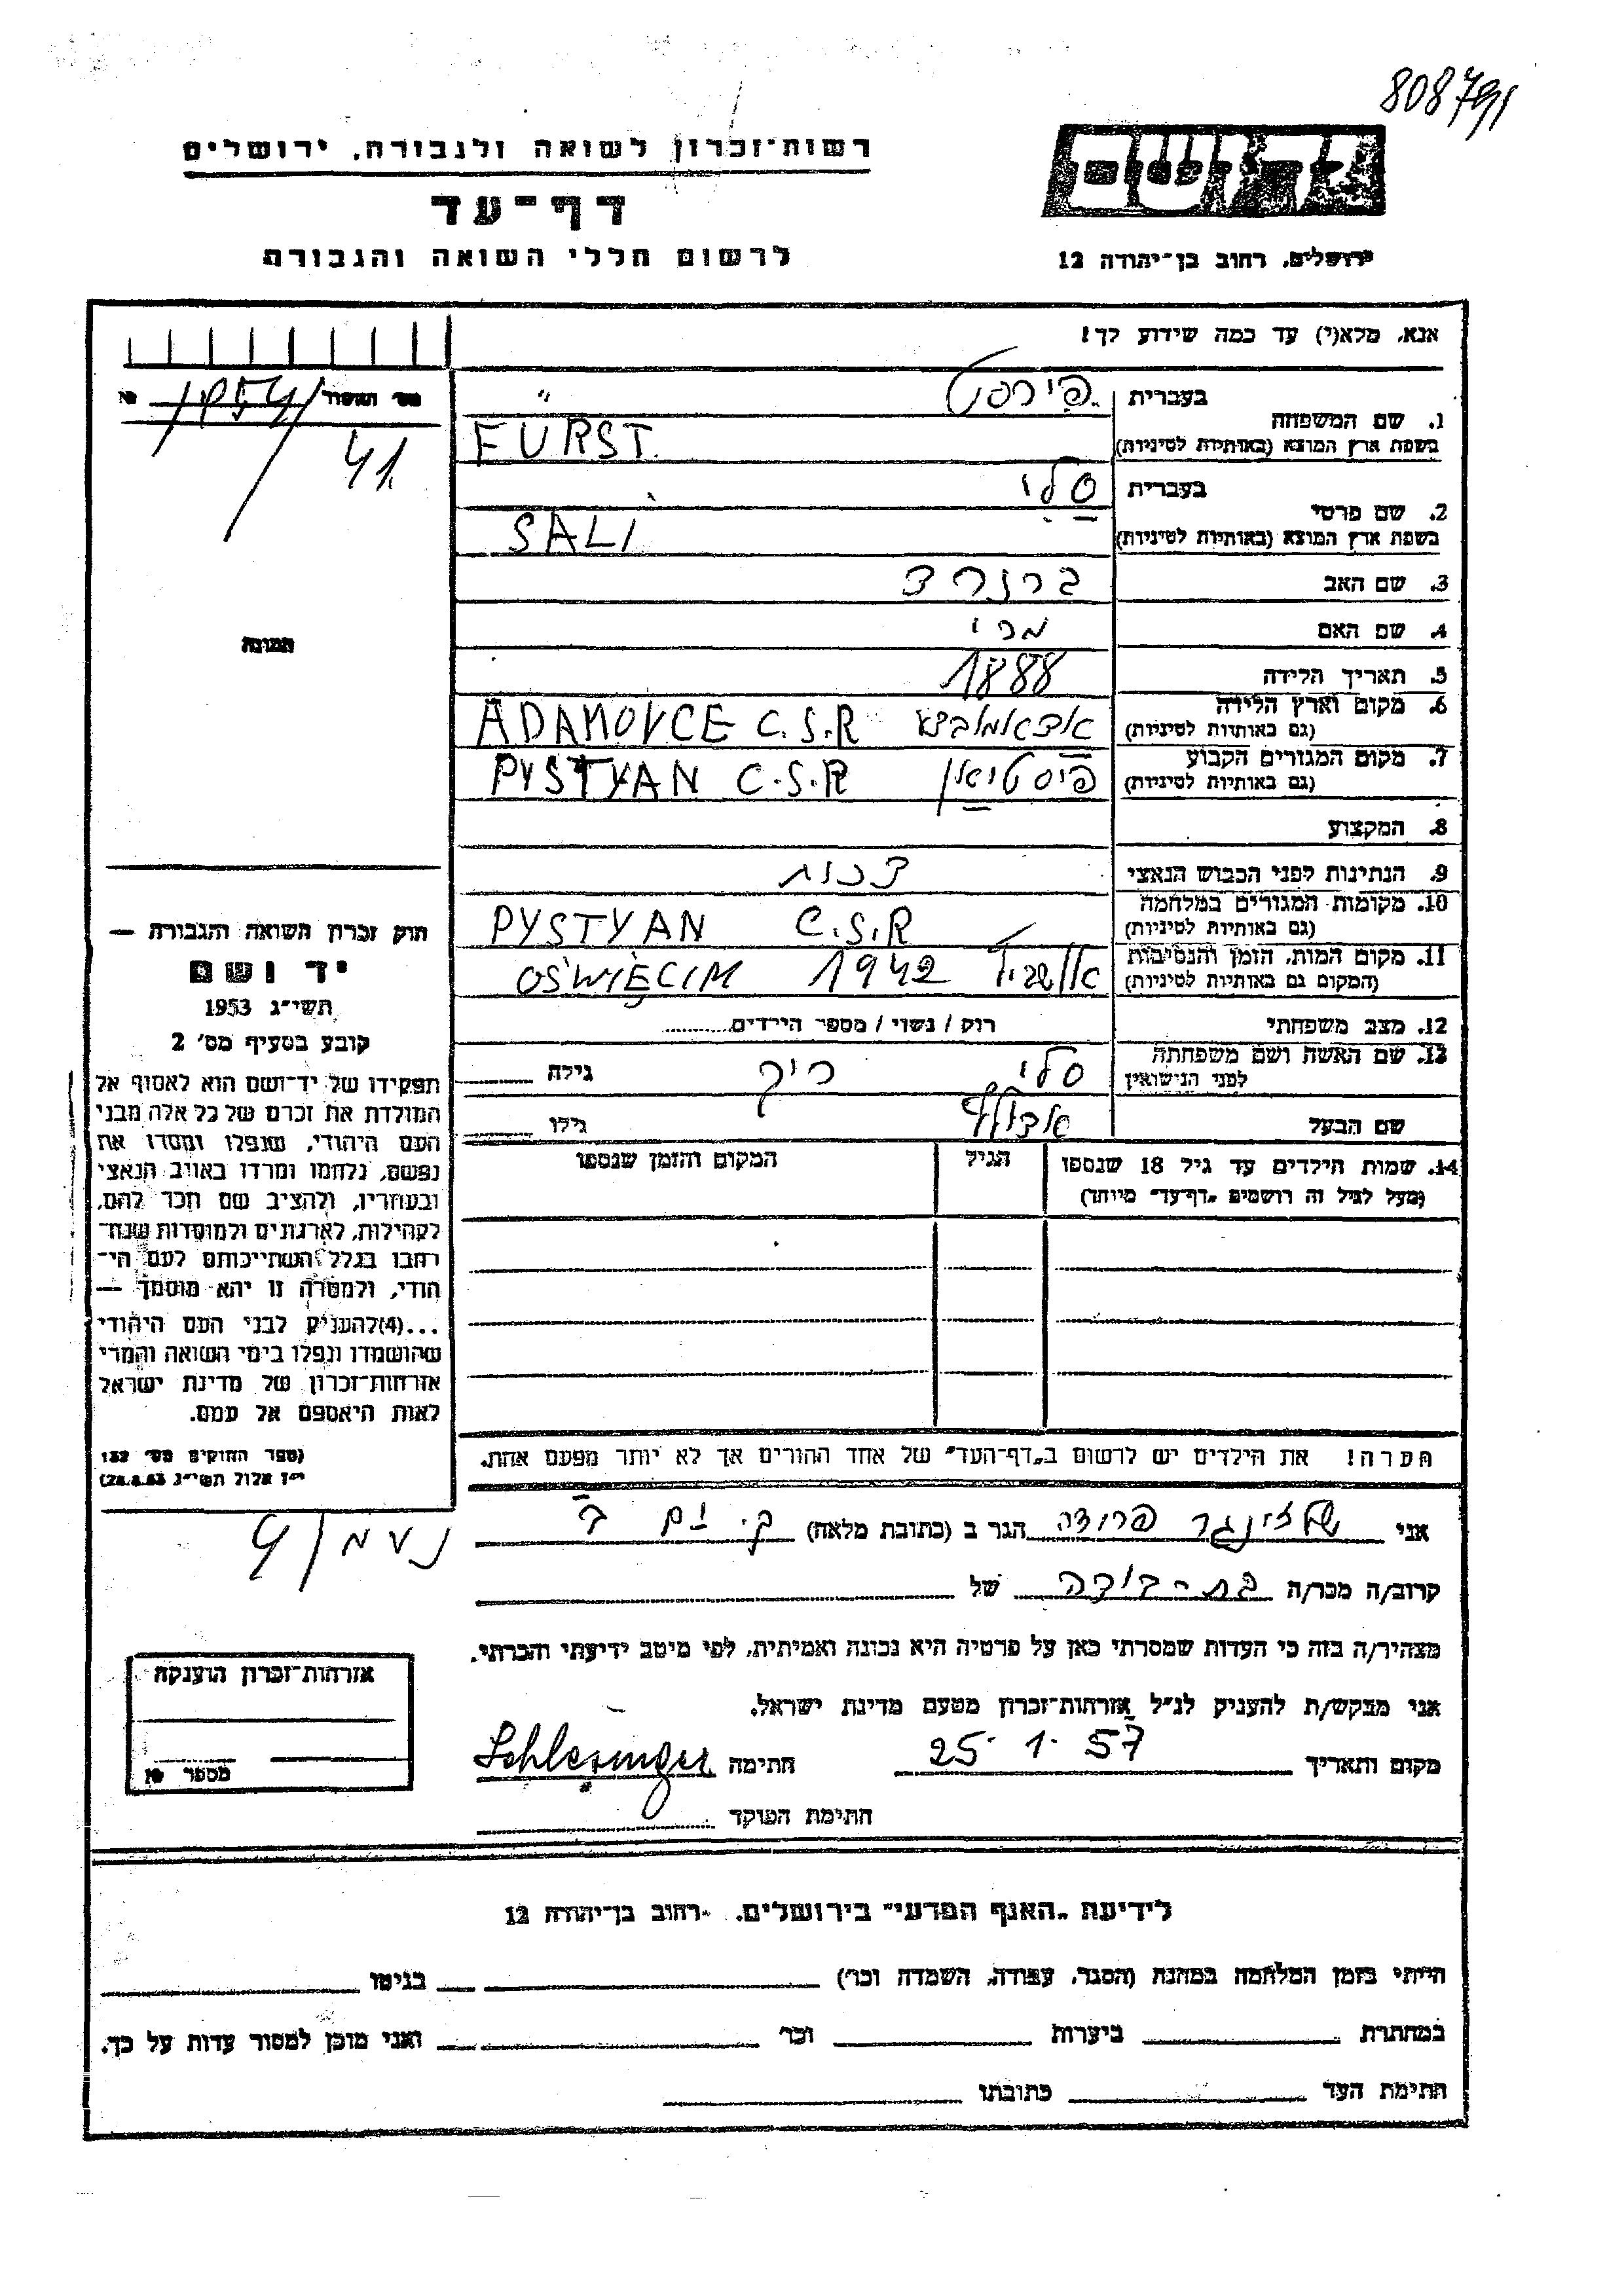 808791
רשות־זכרון לשואה ולגבורה, ירושלים
דף־עד
לרשום חללי השואה והגבורה
ידושם
ירושלים, רחוב בן־יהודה 12
אנא, מלא(י) עד כמה שידוע לך!
1. שם המשפחה
בעברית פירסט
בשפת ארץ המוצא (באותיות לטיניות) FURST
2. שם פרטי
בעברית סלי
בשפת ארץ המוצא (באותיות לטיניות) SALI
3. שם האב ברנרד
4. שם האם מרי
5. תאריך הלידה 1888
6. מקום וארץ הלידה
(גם באותיות לטיניות) ADAMOVCE C.S.R
7. מקום המגורים הקבוע
(גם באותיות לטיניות) פיסטיאן PYSTYAN C.S.R
8. המקצוע
9. הנתינות לפני הכבוש הנאצי צ'כית
10. מקומות המגורים במלחמה
(גם באותיות לטיניות) PYSTYAN C.S.R
11. מקום המות, הזמן והנסיבות
(המקום גם באותיות לטיניות) 1942 OŚWIĘCIM
12. מצב משפחתי רוק / נשוי / מספר הילדים
13. שם האשה ושם משפחתה
לפני הנישואין סלי ריק גילה
שם הבעל אדולף גילו
14. שמות הילדים עד גיל 18 שנספו
(מעל לגיל זה רושמים "דף־עד" מיוחד)
הגיל
המקום והזמן שנספו
הערה! את הילדים יש לרשום ב"דף־העד" של אחד ההורים אך לא יותר מפעם אחת.
מס' 1054/
41
תמונה
חוק זכרון השואה והגבורה —
יד ושם
תשי"ג 1953
קובע בסעיף מס' 2
תפקידו של יד־ושם הוא לאסוף אל
המולדת את זכרם של כל אלה מבני
העם היהודי, שנפלו ומסרו את
נפשם, נלחמו ומרדו באויב הנאצי
ובעוזריו, ולהציב שם וזכר להם,
לקהילות, לארגונים ולמוסדות שנח־
רבו בגלל השתייכותם לעם הי־
הודי, ולמטרה זו יהא מוסמך —
...(4)להעניק לבני העם היהודי
שהושמדו ונפלו בימי השואה והמרי
אזרחות־זכרון של מדינת ישראל
לאות היאספם אל עמם.
(ספר החוקים מס' 132
י"ז אלול תשי"ג 28.8.53)
אני שלזינגר פרידה הגר ב (כתובת מלאה) ק. ים ד
קרוב/ה מכר/ה בת-דודה של
מצהיר/ה בזה כי העדות שמסרתי כאן על פרטיה היא נכונה ואמיתית, לפי מיטב ידיעתי והכרתי.
אני מבקש/ת להעניק לנ"ל אזרחות־זכרון מטעם מדינת ישראל.
מקום ותאריך 25. 1. 57 חתימה Schlesinger
חתימת הפוקד
אזרחות־זכרון הוענקה
מספר №
לידיעת "האגף המדעי" בירושלים, רחוב בן־יהודה 12
הייתי בזמן המלחמה במחנה (הסגר, עבודה, השמדה וכו') בגיטו
במחתרת ביערות וכו' ואני מוכן למסור עדות על כך.
חתימת העד כתובתו